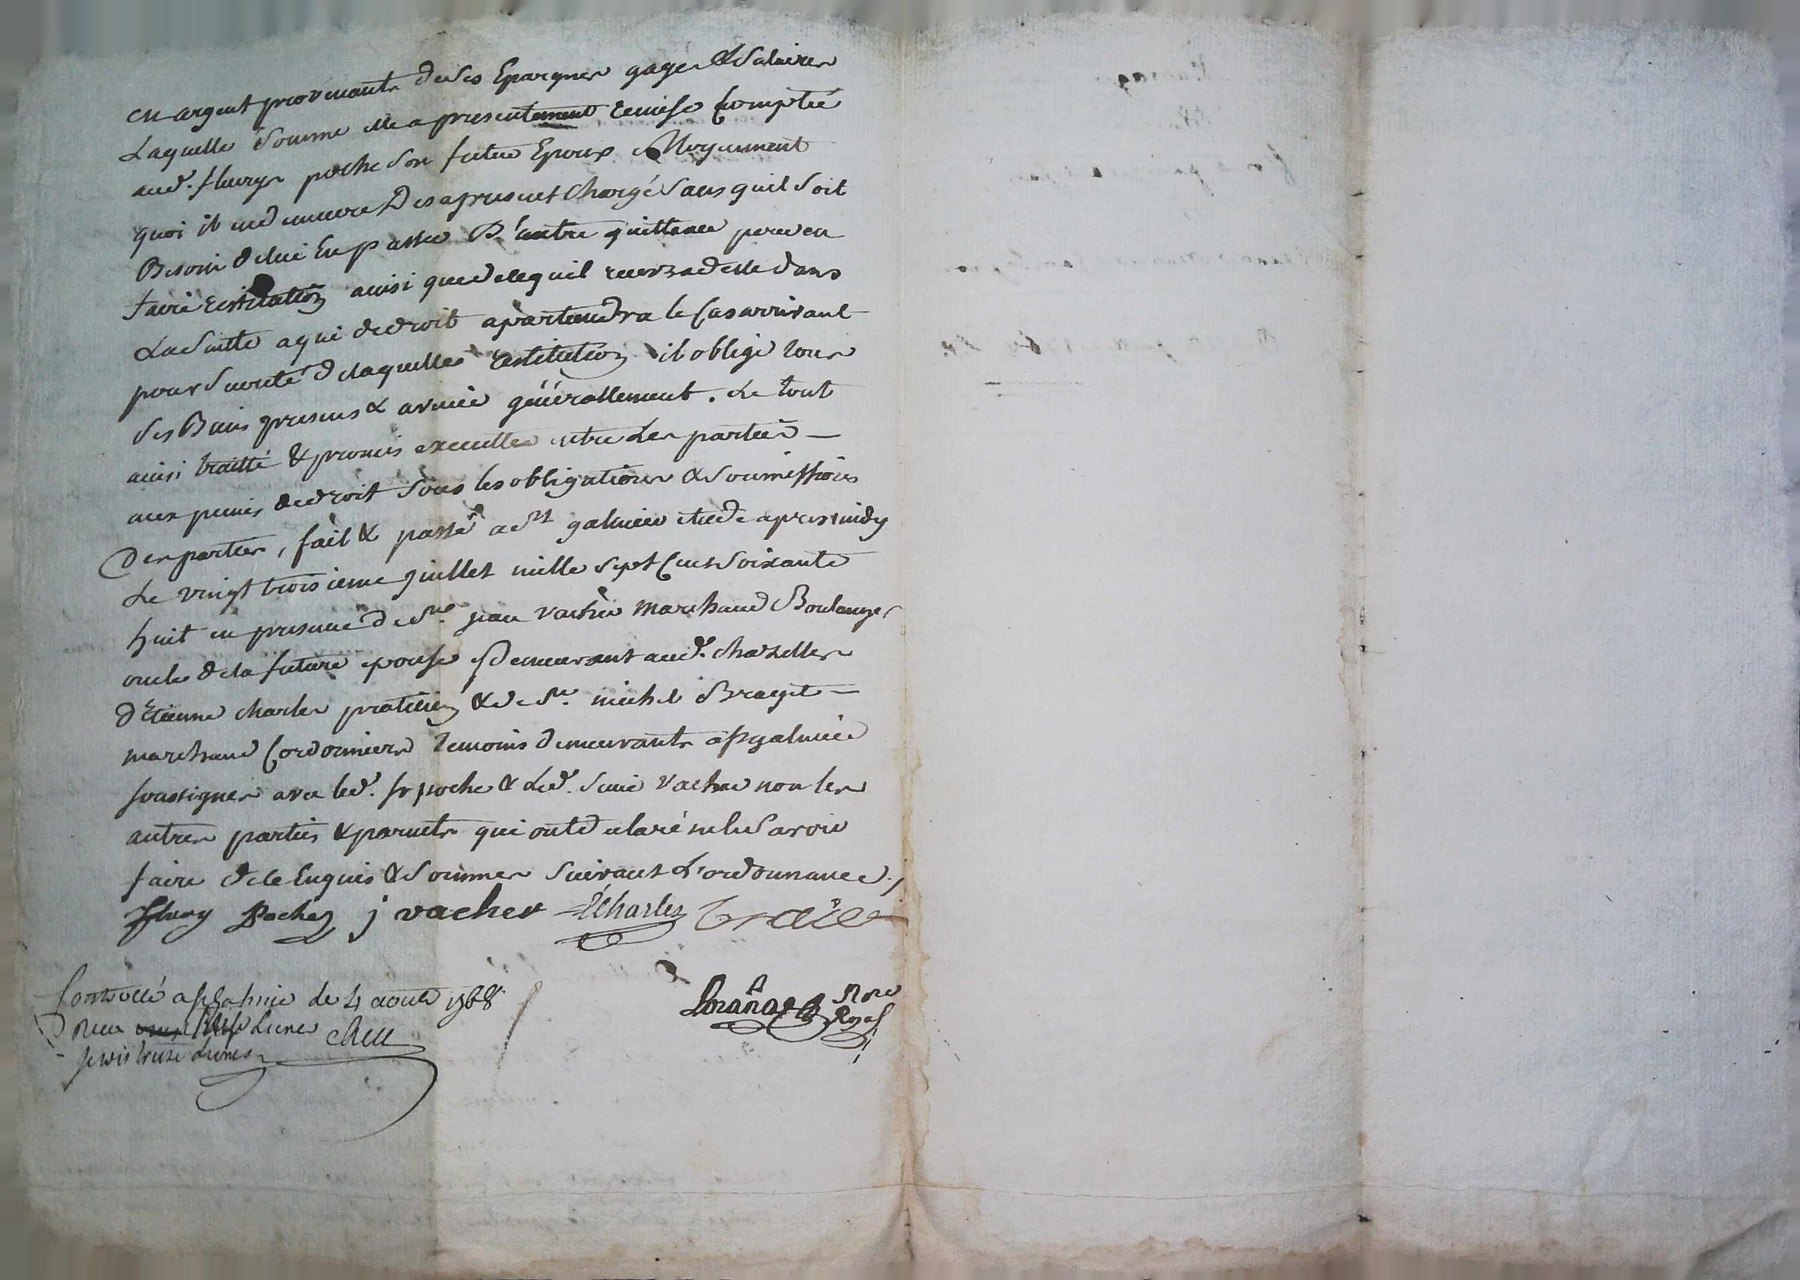 en argent provenants de ses Epargnes gages & Salaires
Laquelle Somme elle a presentement remise Comptée
aud. fleury poche son futur Epoux Moyennant
quoi il en demeure Des apresent Chargé Sans quil Soit
Besoin de lui En passer D'autre quittance pour en
faire restitution ainsi que de ce quil recevra delle dans
La Suitte a qui de droit apartiendra le Cas arrivant
pour Sureté de laquelle restitution il oblige tous
Ses Biens presens & avenir généralement. Le tout
ainsi traitté & promis executter entre Les parties
aux peines de droit Sous les obligations & Soumissions
Des parties, fait & passé a St galmier etude apres midy
Le vingt troisieme juillet mille sept Cent Soixante
huit en presence de Sr. jean vacher marchand Boulanger
oncle de la future epouse Demeurant aud. chazelles
d'Etienne charles praticien & de Sr. michel
marchand Cordonnier temoins demeurants a St galmier
soussignes avec led. fr poche & Led. Sieur vacher non les
autres parties & parents qui ont declaré ne le Savoir
faire de ce Enquis & Sommes Suivant L'ordonnance,
fleury Poche j vacher ECharles
Controllé a St Galmier le 4 aout 1768
Reçu Livres
treize Livres
Nore
Royal